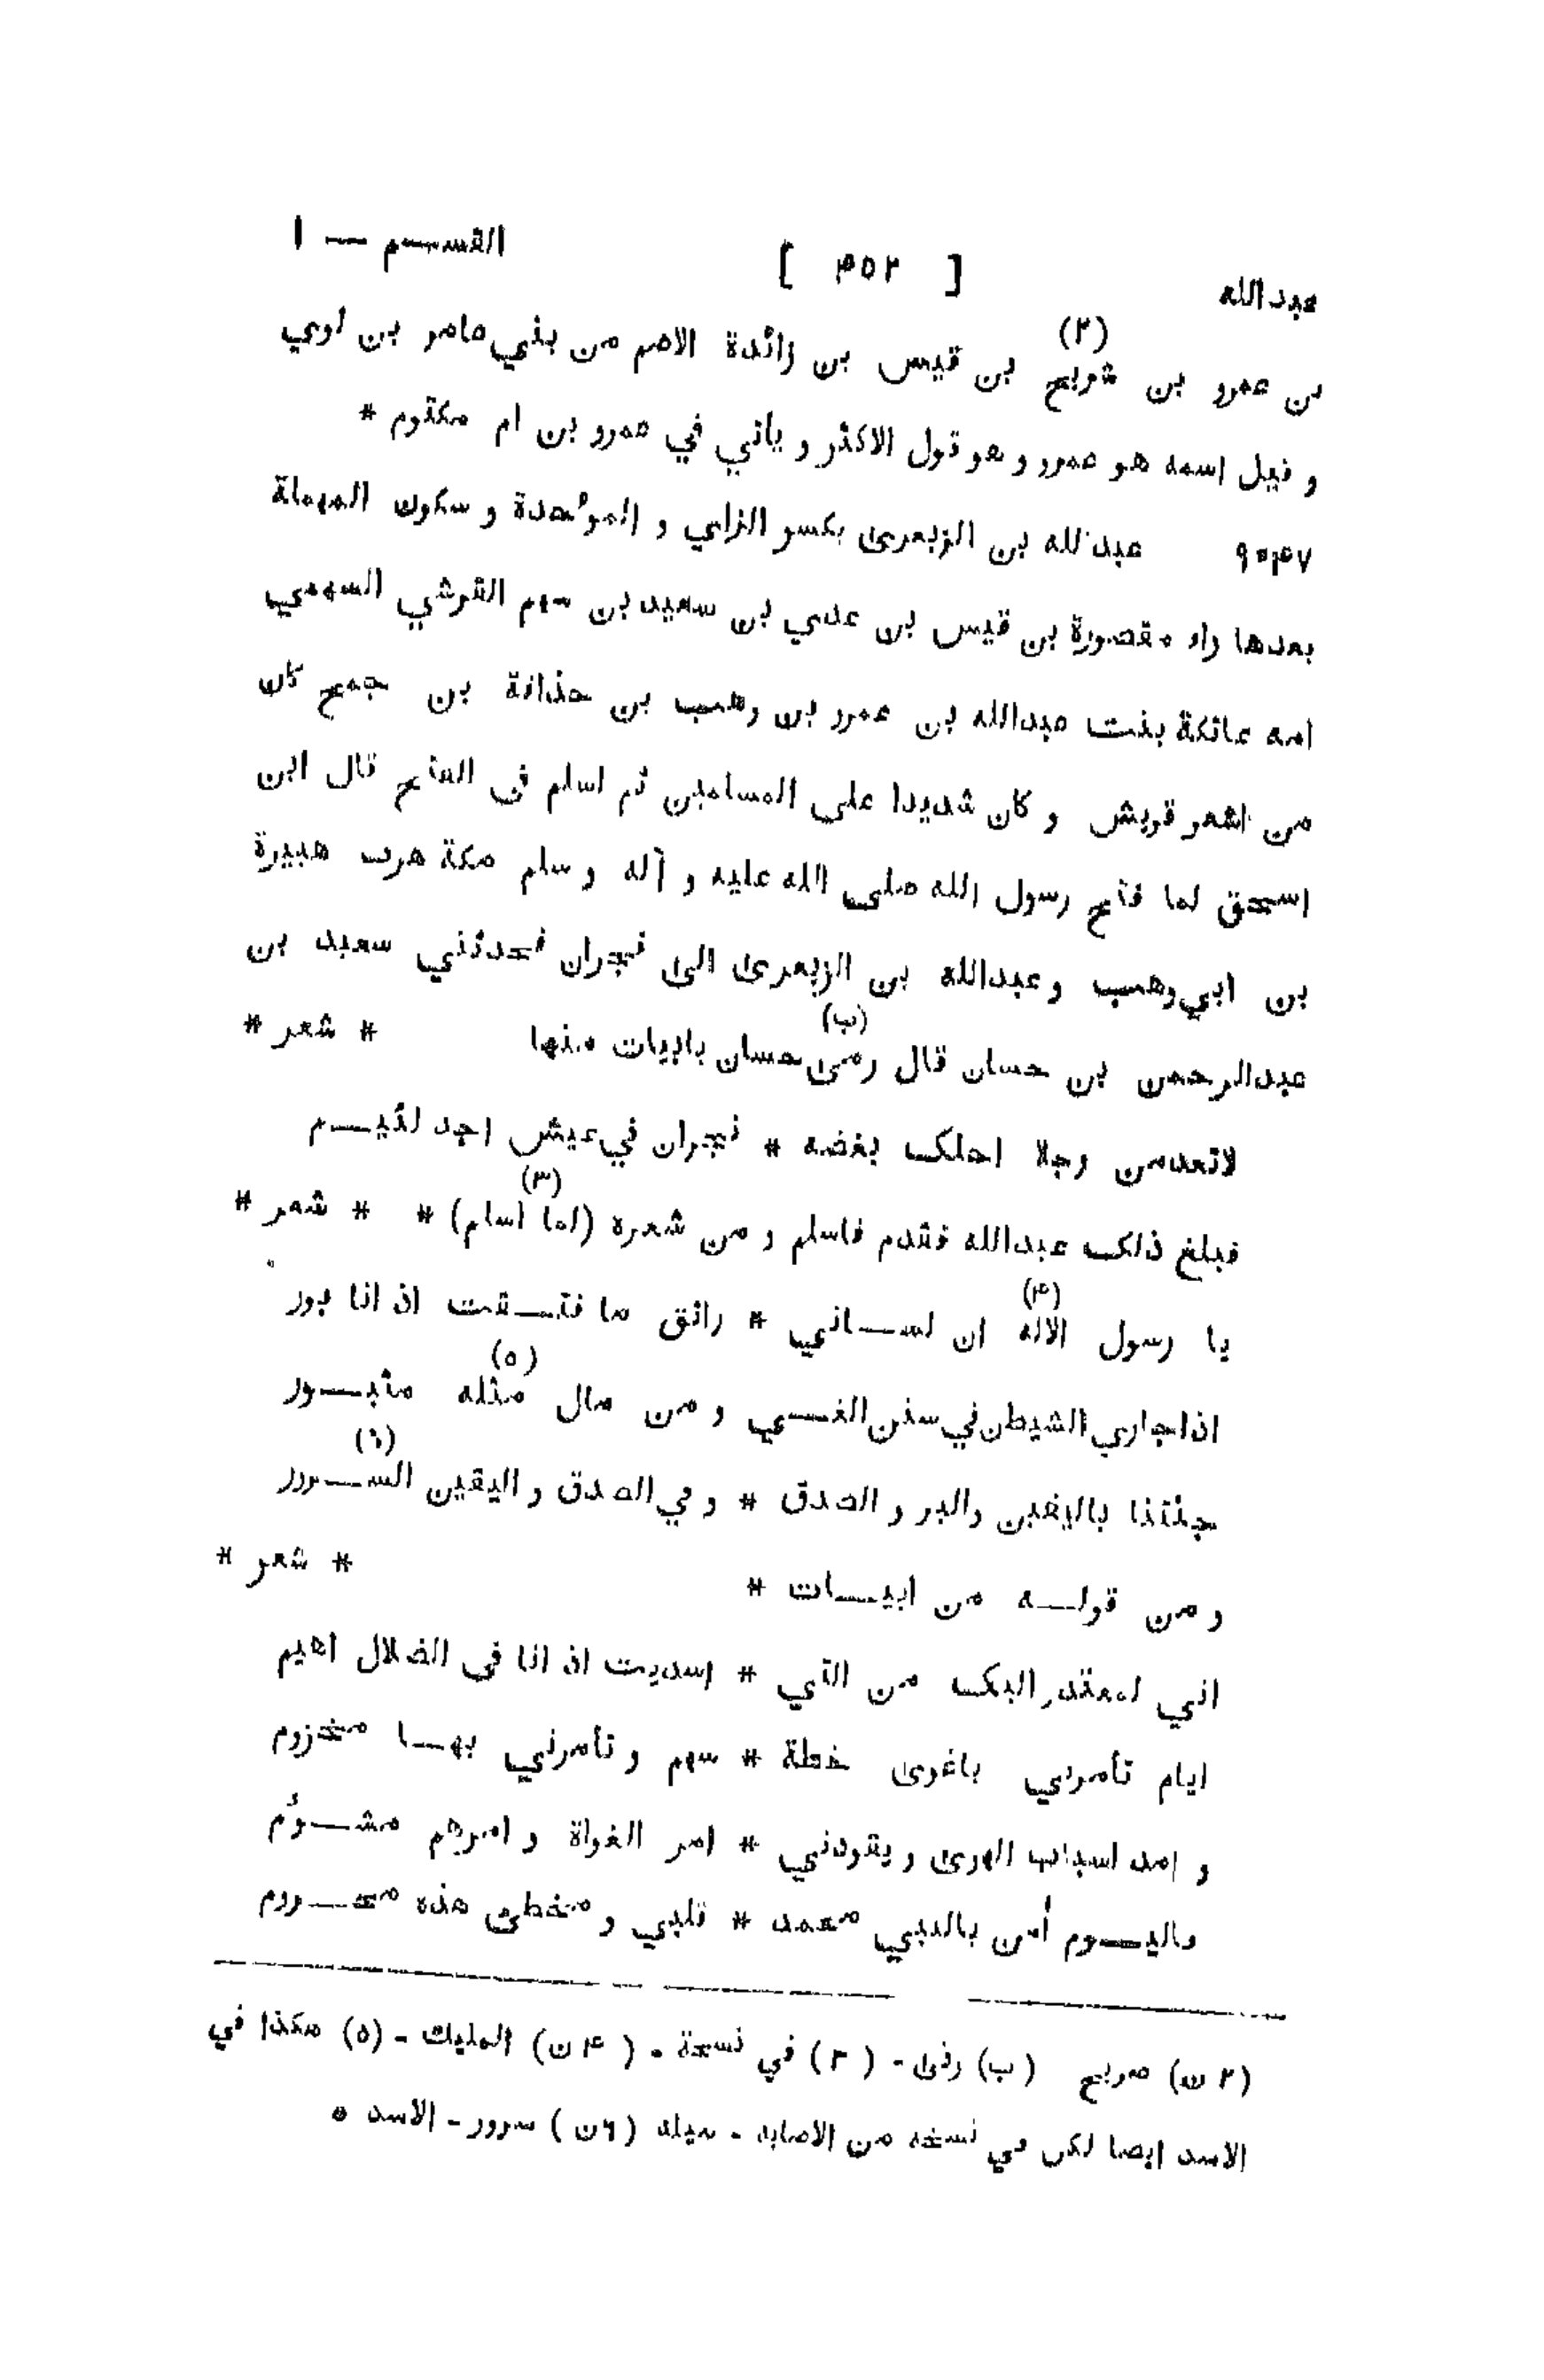 عبدالله [ ۴۵۲ ] القسم — ۱
بن عمرو بن شريح (۲) بن قيس بن زائدة الاصم من بني عامر بن لوي
و قيل اسمه هو عمرو و هو قول الاكثر و يأتي في عمرو بن ام مكتوم *
عبدالله بن الزبعرى بكسر الزاي و الموحدة و سكون المهملة
بعدها راء مقصورة بن قيس بن عدي بن سعيد بن سهم القرشي السهمي
امه عاتكة بنت عبدالله بن عمرو بن وهب بن حذافة بن جمح كان
من اشعر قريش و كان شديدا على المسلمين ثم اسلم فى الفتح قال ابن
اسحق لما فتح رسول الله صلى الله عليه و آله و سلم مكة هرب هبيرة
بن ابي وهب و عبدالله بن الزبعرى الى نجران فحدثني سعيد بن
عبدالرحمن بن حسان قال رمى (ب) حسان بابيات منها * شعر *
لاتعدمن رجلا احلک بغضه * نجران في عيش اجد لئيـــم
فبلغ ذلک عبدالله فقدم فاسلم و من شعره (لما اسلم) (۳) * * شعر *
يا رسول الاله (۴) ان لســـاني * راتق ما فتـــقت اذ انا بور
اذا جاري الشيطن في سنن الغـــي و من مال مثله (۵) مثبـــور
جئتنا باليقين والبر و الصدق * و في الصدق و اليقين الســـرور (۶)
و من قولـــه من ابيـــات * * شعر *
اني لمعتذر اليک من التي * اسديت اذ انا فى الضلال اهيم
ايام تأمرني باغوى خطة * سهم و تأمرني بهـــا مخزوم
و امد اسباب الهوى و يقودني * امر الغواة و امرهم مشـــؤم
فاليـــوم أمن بالنبي محمد * قلبي و مخطئ هذه محـــروم
(۲ ن) صريح (ب) رفى - (۳) في نسخة - (۴ ن) المليك - (۵) هكذا في
الاسد ايضا لكن في نسخه من الاصابه - ميله (۶ ن) سرور - الاسد *